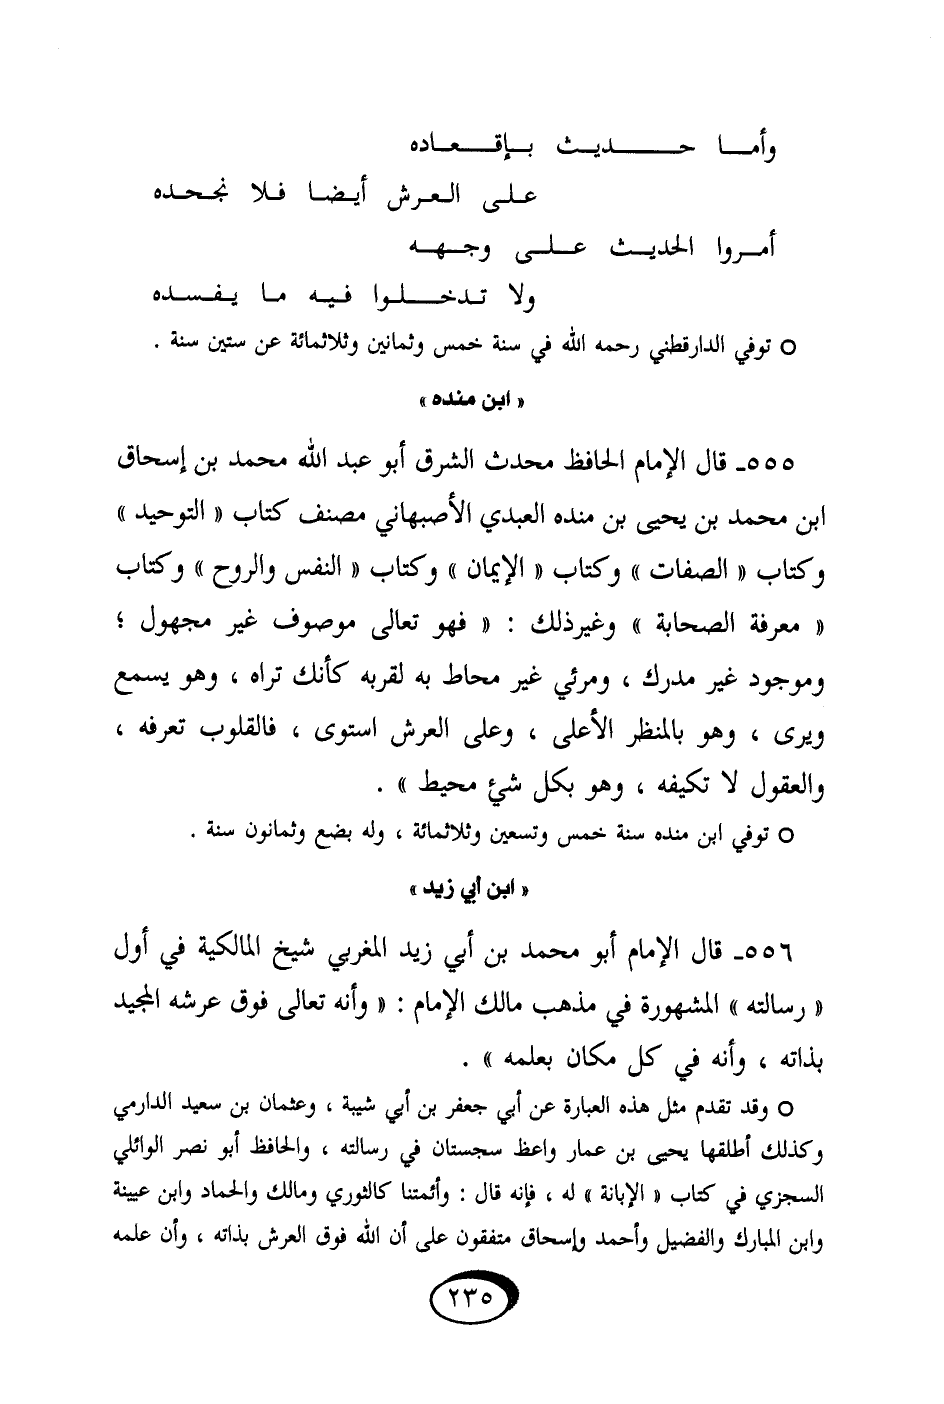 وأما حديث بإقعاده
على العرش أيضا فلا نجحده
أمروا الحديث على وجهه
ولا تدخلوا فيه ما يفسده
○ توفي الدارقطني رحمه الله في سنة خمس وثمانين وثلاثمائة عن ستين سنة .
« ابن منده »
٥٥٥ـ قال الإمام الحافظ محدث الشرق أبو عبد الله محمد بن إسحاق
ابن محمد بن يحيى بن منده العبدي الأصبهاني مصنف كتاب « التوحيد »
وكتاب « الصفات » وكتاب « الإيمان » وكتاب « النفس والروح » وكتاب
« معرفة الصحابة » وغيرذلك : « فهو تعالى موصوف غير مجهول ؛
وموجود غير مدرك ، ومرئي غير محاط به لقربه كأنك تراه ، وهو يسمع
ويرى ، وهو بالمنظر الأعلى ، وعلى العرش استوى ، فالقلوب تعرفه ،
والعقول لا تكيفه ، وهو بكل شئ محيط » .
○ توفي ابن منده سنة خمس وتسعين وثلاثمائة ، وله بضع وثمانون سنة .
« ابن أبي زيد »
٥٥٦ـ قال الإمام أبو محمد بن أبي زيد المغربي شيخ المالكية في أول
« رسالته » المشهورة في مذهب مالك الإمام : « وأنه تعالى فوق عرشه المجيد
بذاته ، وأنه في كل مكان بعلمه » .
○ وقد تقدم مثل هذه العبارة عن أبي جعفر بن أبي شيبة ، وعثمان بن سعيد الدارمي
وكذلك أطلقها يحيى بن عمار واعظ سجستان في رسالته ، والحافظ أبو نصر الوائلي
السجزي في كتاب « الإبانة » له ، فإنه قال : وأئمتنا كالثوري ومالك والحماد وابن عيينة
وابن المبارك والفضيل وأحمد وإسحاق متفقون على أن الله فوق العرش بذاته ، وأن علمه
٢٣٥